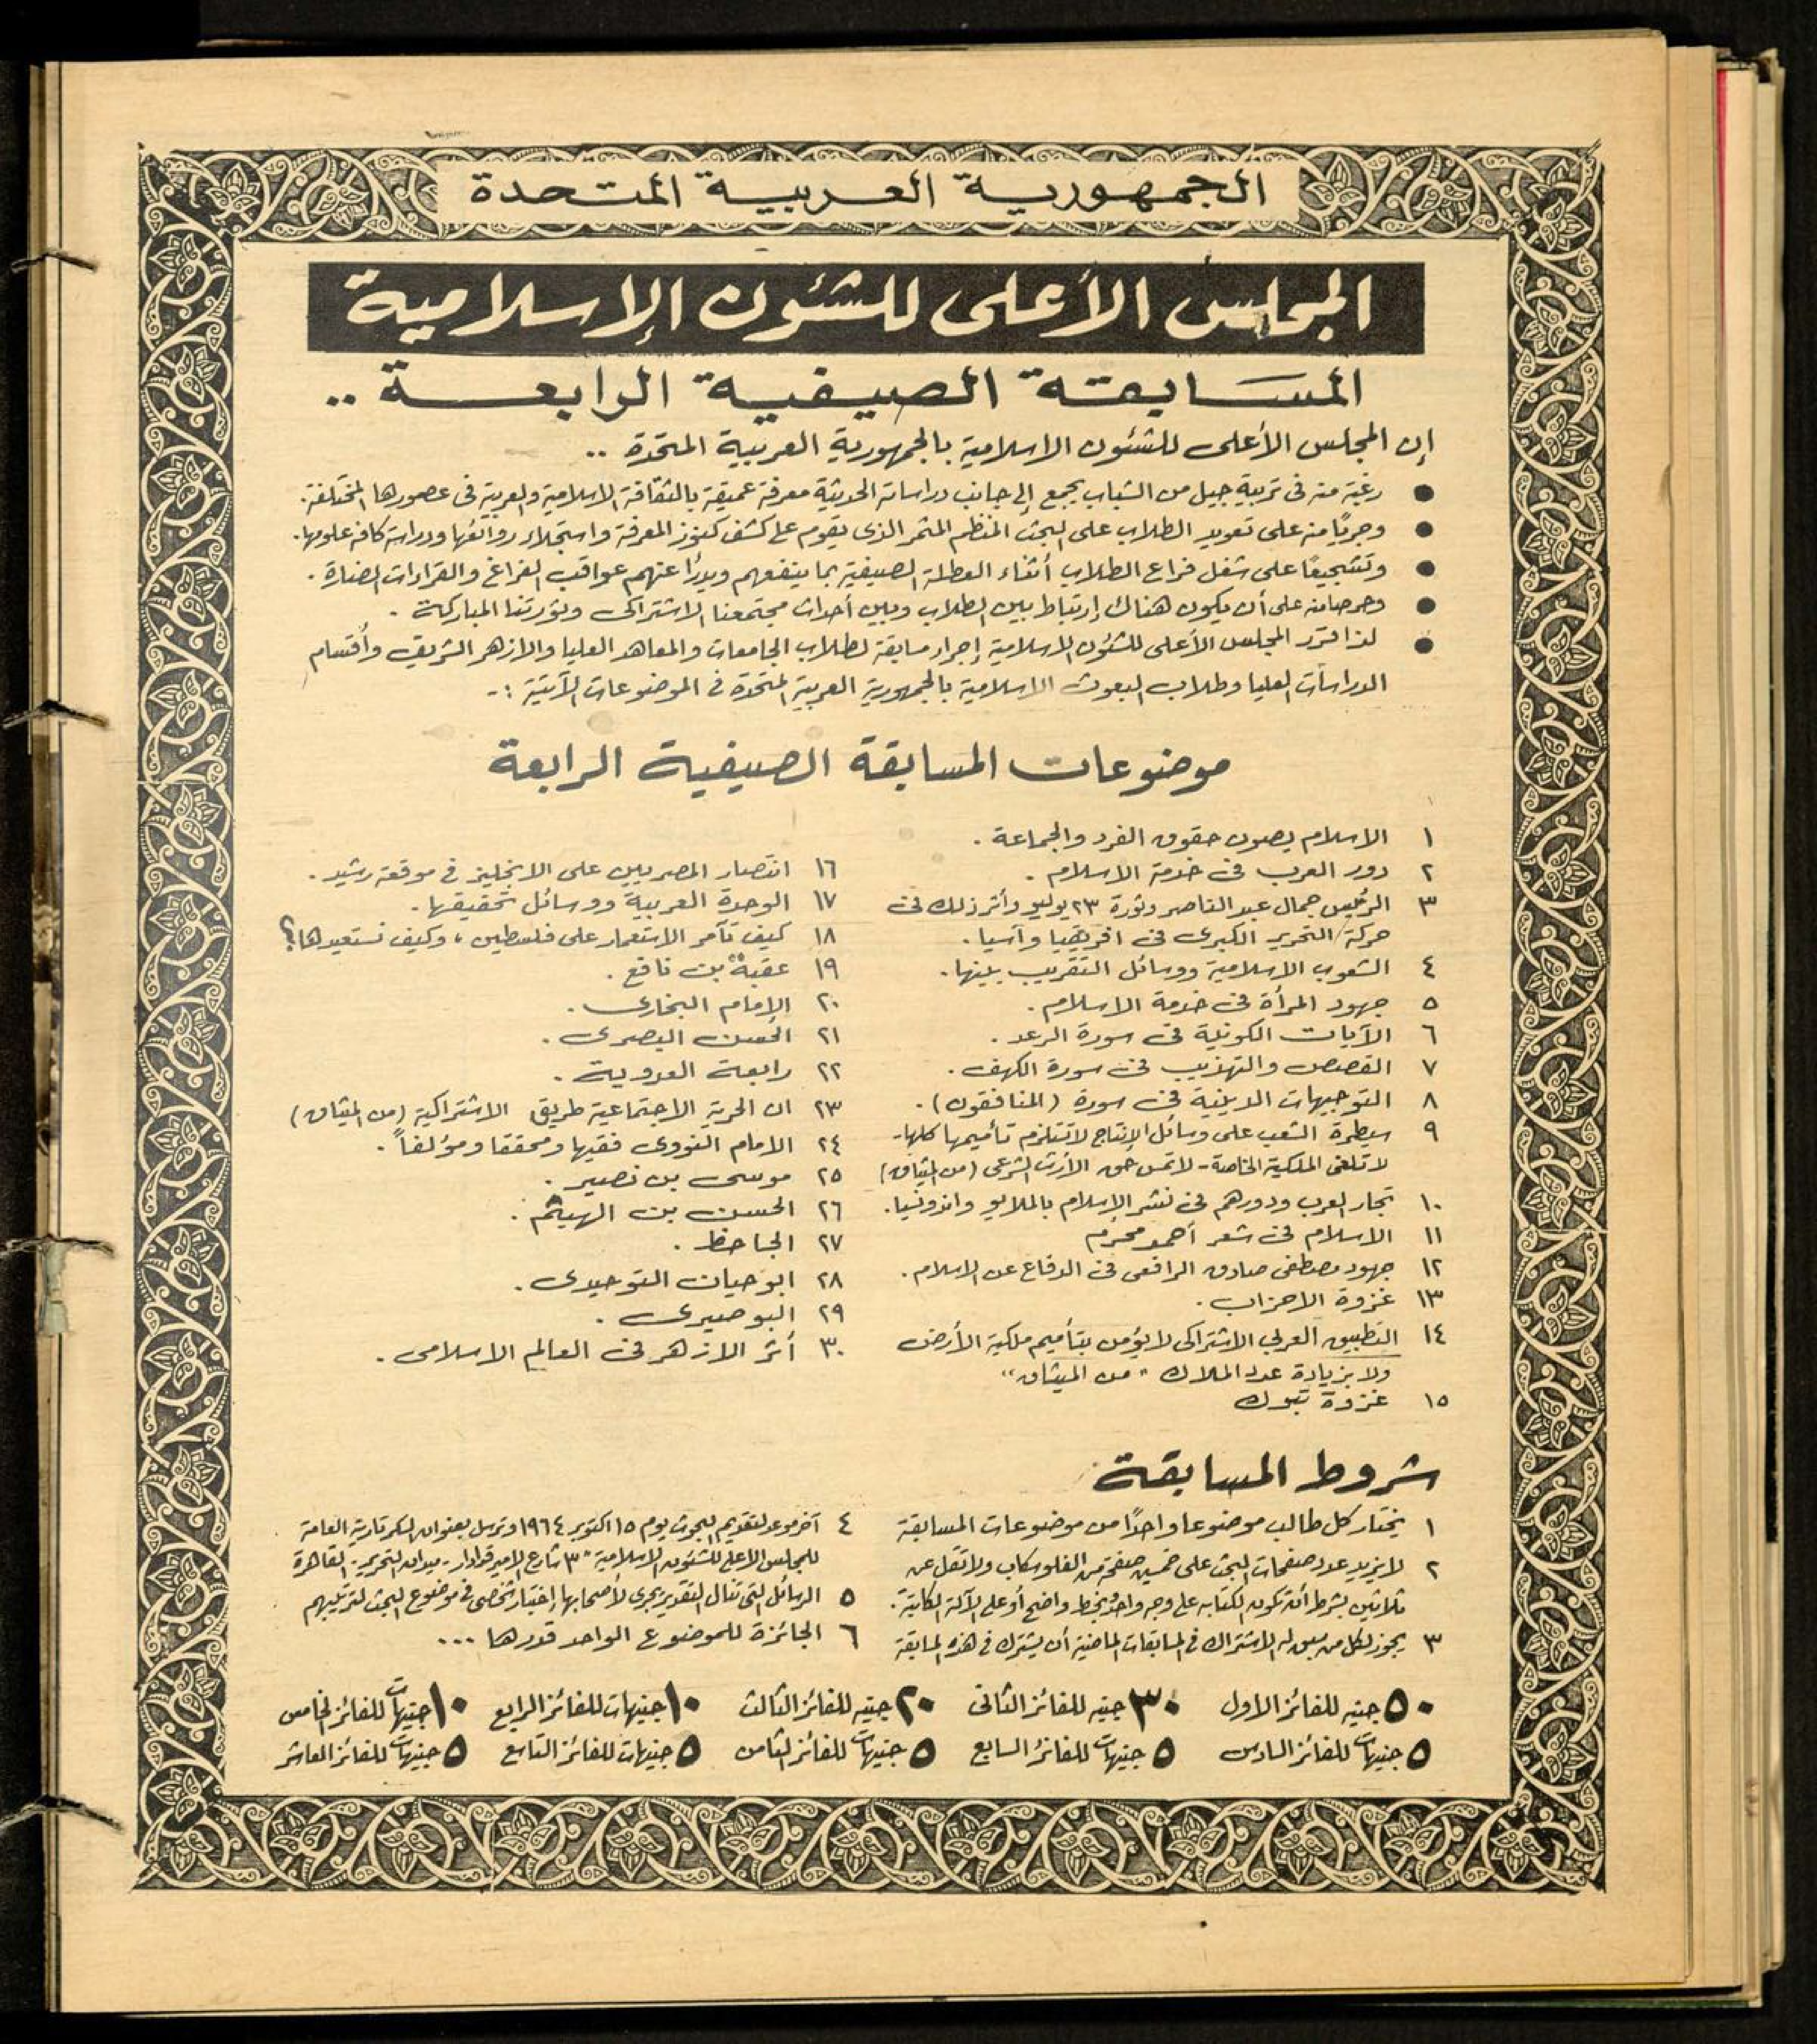 الجمهورية العربية المتحدة
المجلس الأعلى للشئون الإسلامية
المسابقة الصيفية الرابعة ..
إن المجلس الأعلى للشئون الاسلامية بالجمهورية العربية المتحدة ..
● رغبة منه فى تربية جيل من الشباب يجمع إلى جانب دراساته الحديثة معرفة عميقة بالثقافة الاسلامية والعربية فى عصورها المختلفة .
● وجريًا منه على تعويد الطلاب على البحث المنظم المثمر الذى يقوم على كشف كنوز المعرفة واستجلاء روائعها ودراسة كافة علومها .
● وتشجيعًا على شغل فراغ الطلاب أثناء العطلة الصيفية بما ينفعهم ويدرأ عنهم عواقب الفراغ والقراءات الضارة .
● وحرصا منه على أن يكون هناك إرتباط بين الطلاب وبين أحداث مجتمعنا الاشتراكى وثورتنا المباركة .
● لذا قرر المجلس الأعلى للشئون الاسلامية إجراء مسابقة لطلاب الجامعات والمعاهد العليا والازهر الشريف وأقسام
الدراسات العليا وطلاب البعوث الاسلامية بالجمهورية العربية المتحدة فى الموضوعات الآتية :-
موضوعات المسابقة الصيفية الرابعة
١ الاسلام يصون حقوق الفرد والجماعة .
٢ دور العرب فى خدمة الاسلام .
٣ الرئيس جمال عبد الناصر وثورة ٢٣ يوليو وأثر ذلك فى
حركة التحرير الكبرى فى افريقيا وآسيا .
٤ الشعوب الاسلامية ووسائل التقريب بينها .
٥ جهود المرأة فى خدمة الاسلام .
٦ الآيات الكونية فى سورة الرعد .
٧ القصص والتهذيب فى سورة الكهف .
٨ التوجيهات الدينية فى سورة (المنافقون) .
٩ سيطرة الشعب على وسائل الإنتاج لا تستلزم تأميمها كلها -
لا تلغى الملكية الخاصة - لا تمس حق الأرث الشرعى (من الميثاق)
١٠ تجار العرب ودورهم فى نشر الإسلام بالملايو واندونسيا .
١١ الاسلام فى شعر أحمد محرم
١٢ جهود مصطفى صادق الرافعى فى الدفاع عن الاسلام .
١٣ غزوة الاحزاب .
١٤ التطبيق العربى الاشتراكى لا يؤمن بتأميم ملكية الأرض
ولا بزيادة عدد الملاك " من الميثاق "
١٥ غزوة تبوك
١٦ انتصار المصريين على الانجليز فى موقعة رشيد .
١٧ الوحدة العربية ووسائل تحقيقها .
١٨ كيف تآمر الاستعمار على فلسطين ، وكيف نستعيدها ؟
١٩ عقبة بن نافع .
٢٠ الإمام البخارى .
٢١ الحسن البصرى .
٢٢ رابعة العدوية .
٢٣ ان الحرية الاجتماعية طريق الاشتراكية (من الميثاق)
٢٤ الامام النووى فقيها ومحققا ومؤلفاً .
٢٥ موسى بن نصير .
٢٦ الحسن بن الهيثم .
٢٧ الجاحظ .
٢٨ ابو حيان التوحيدى .
٢٩ البوصيرى .
٣٠ أثر الازهر فى العالم الاسلامى .
شروط المسابقة
١ يختار كل طالب موضوعا واحدًا من موضوعات المسابقة
٢ لا يزيد عدد صفحات البحث على خمسين صفحة من الفلوسكاب ولا تقل عن
ثلاثين بشرط أن تكون الكتابه على وجه واحد وبخط واضح أو على الآلة الكاتبة .
٣ يجوز لكل من سبق له الاشتراك فى المسابقات الماضية أن يشترك فى هذه المسابقة
٤ آخر موعد لتقديم البحوث يوم ١٥ اكتوبر ١٩٦٤ وترسل بعنوان السكرتارية العامة
للمجلس الأعلى للشئون الاسلامية " ٣ شارع الامير قدادار - ميدان التحرير - القاهرة
٥ الرسائل التى تنال التقدير يجرى لأصحابها إختبار شخصى فى موضوع البحث لترتيبهم
٦ الجائزة للموضوع الواحد قدرها ...
٥٠ جنيه للفائز الاول ٣٠ جنيه للفائز الثانى ٢٠ جنيه للفائز الثالث ١٠ جنيهات للفائز الرابع ١٠ جنيهات للفائز الخامس
٥ جنيهات للفائز السادس ٥ جنيهات للفائز السابع ٥ جنيهات للفائز الثامن ٥ جنيهات للفائز التاسع ٥ جنيهات للفائز العاشر